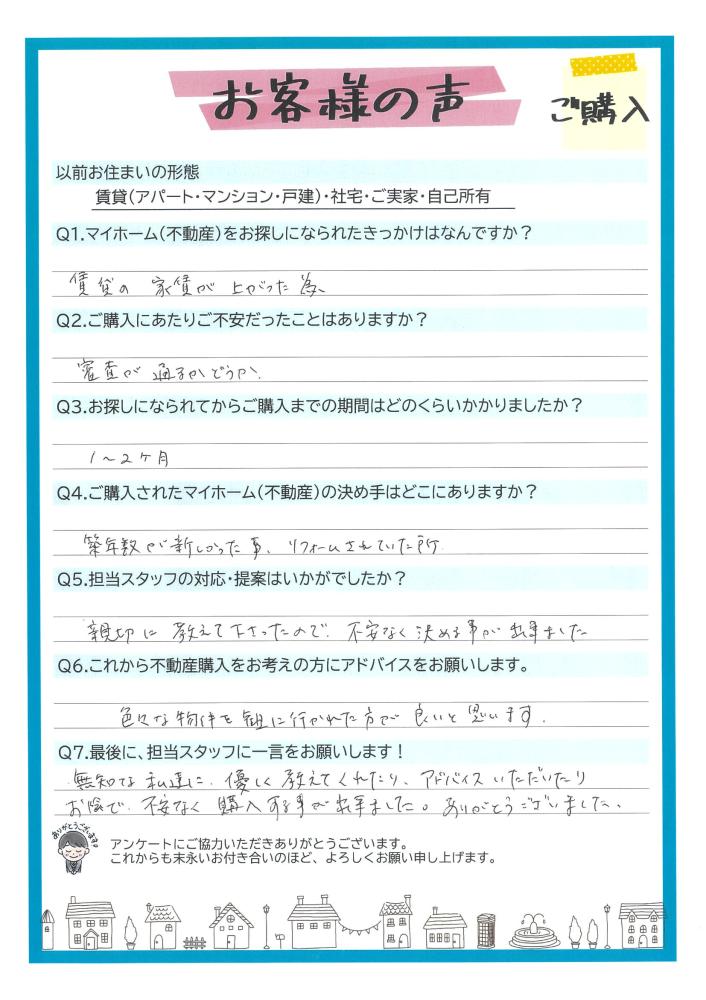 お客様の声
ご購入
以前お住まいの形態
賃貸(アパート・マンション・戸建)・社宅・ご実家・自己所有
Q1.マイホーム(不動産)をお探しになられたきっかけはなんですか?
賃貸の 家賃が 上がった為、
Q2.ご購入にあたりご不安だったことはありますか?
審査が 通るかどうか。
Q3.お探しになられてからご購入までの期間はどのくらいかかりましたか?
1~2ヶ月
Q4.ご購入されたマイホーム(不動産)の決め手はどこにありますか?
築年数が新しかった事、リフォームされていた所
Q5.担当スタッフの対応・提案はいかがでしたか?
親切に 教えて下さったので、不安なく決める事が出来ました
Q6.これから不動産購入をお考えの方にアドバイスをお願いします。
色々な物件を観に行かれた方で良いと思います。
Q7.最後に、担当スタッフに一言をお願いします!
無知な私達に、優しく教えてくれたり、アドバイスいただいたり
お陰で、不安なく購入する事が出来ました。ありがとうございました。
ありがとうございます。
アンケートにご協力いただきありがとうございます。
これからも末永いお付き合いのほど、よろしくお願い申し上げます。